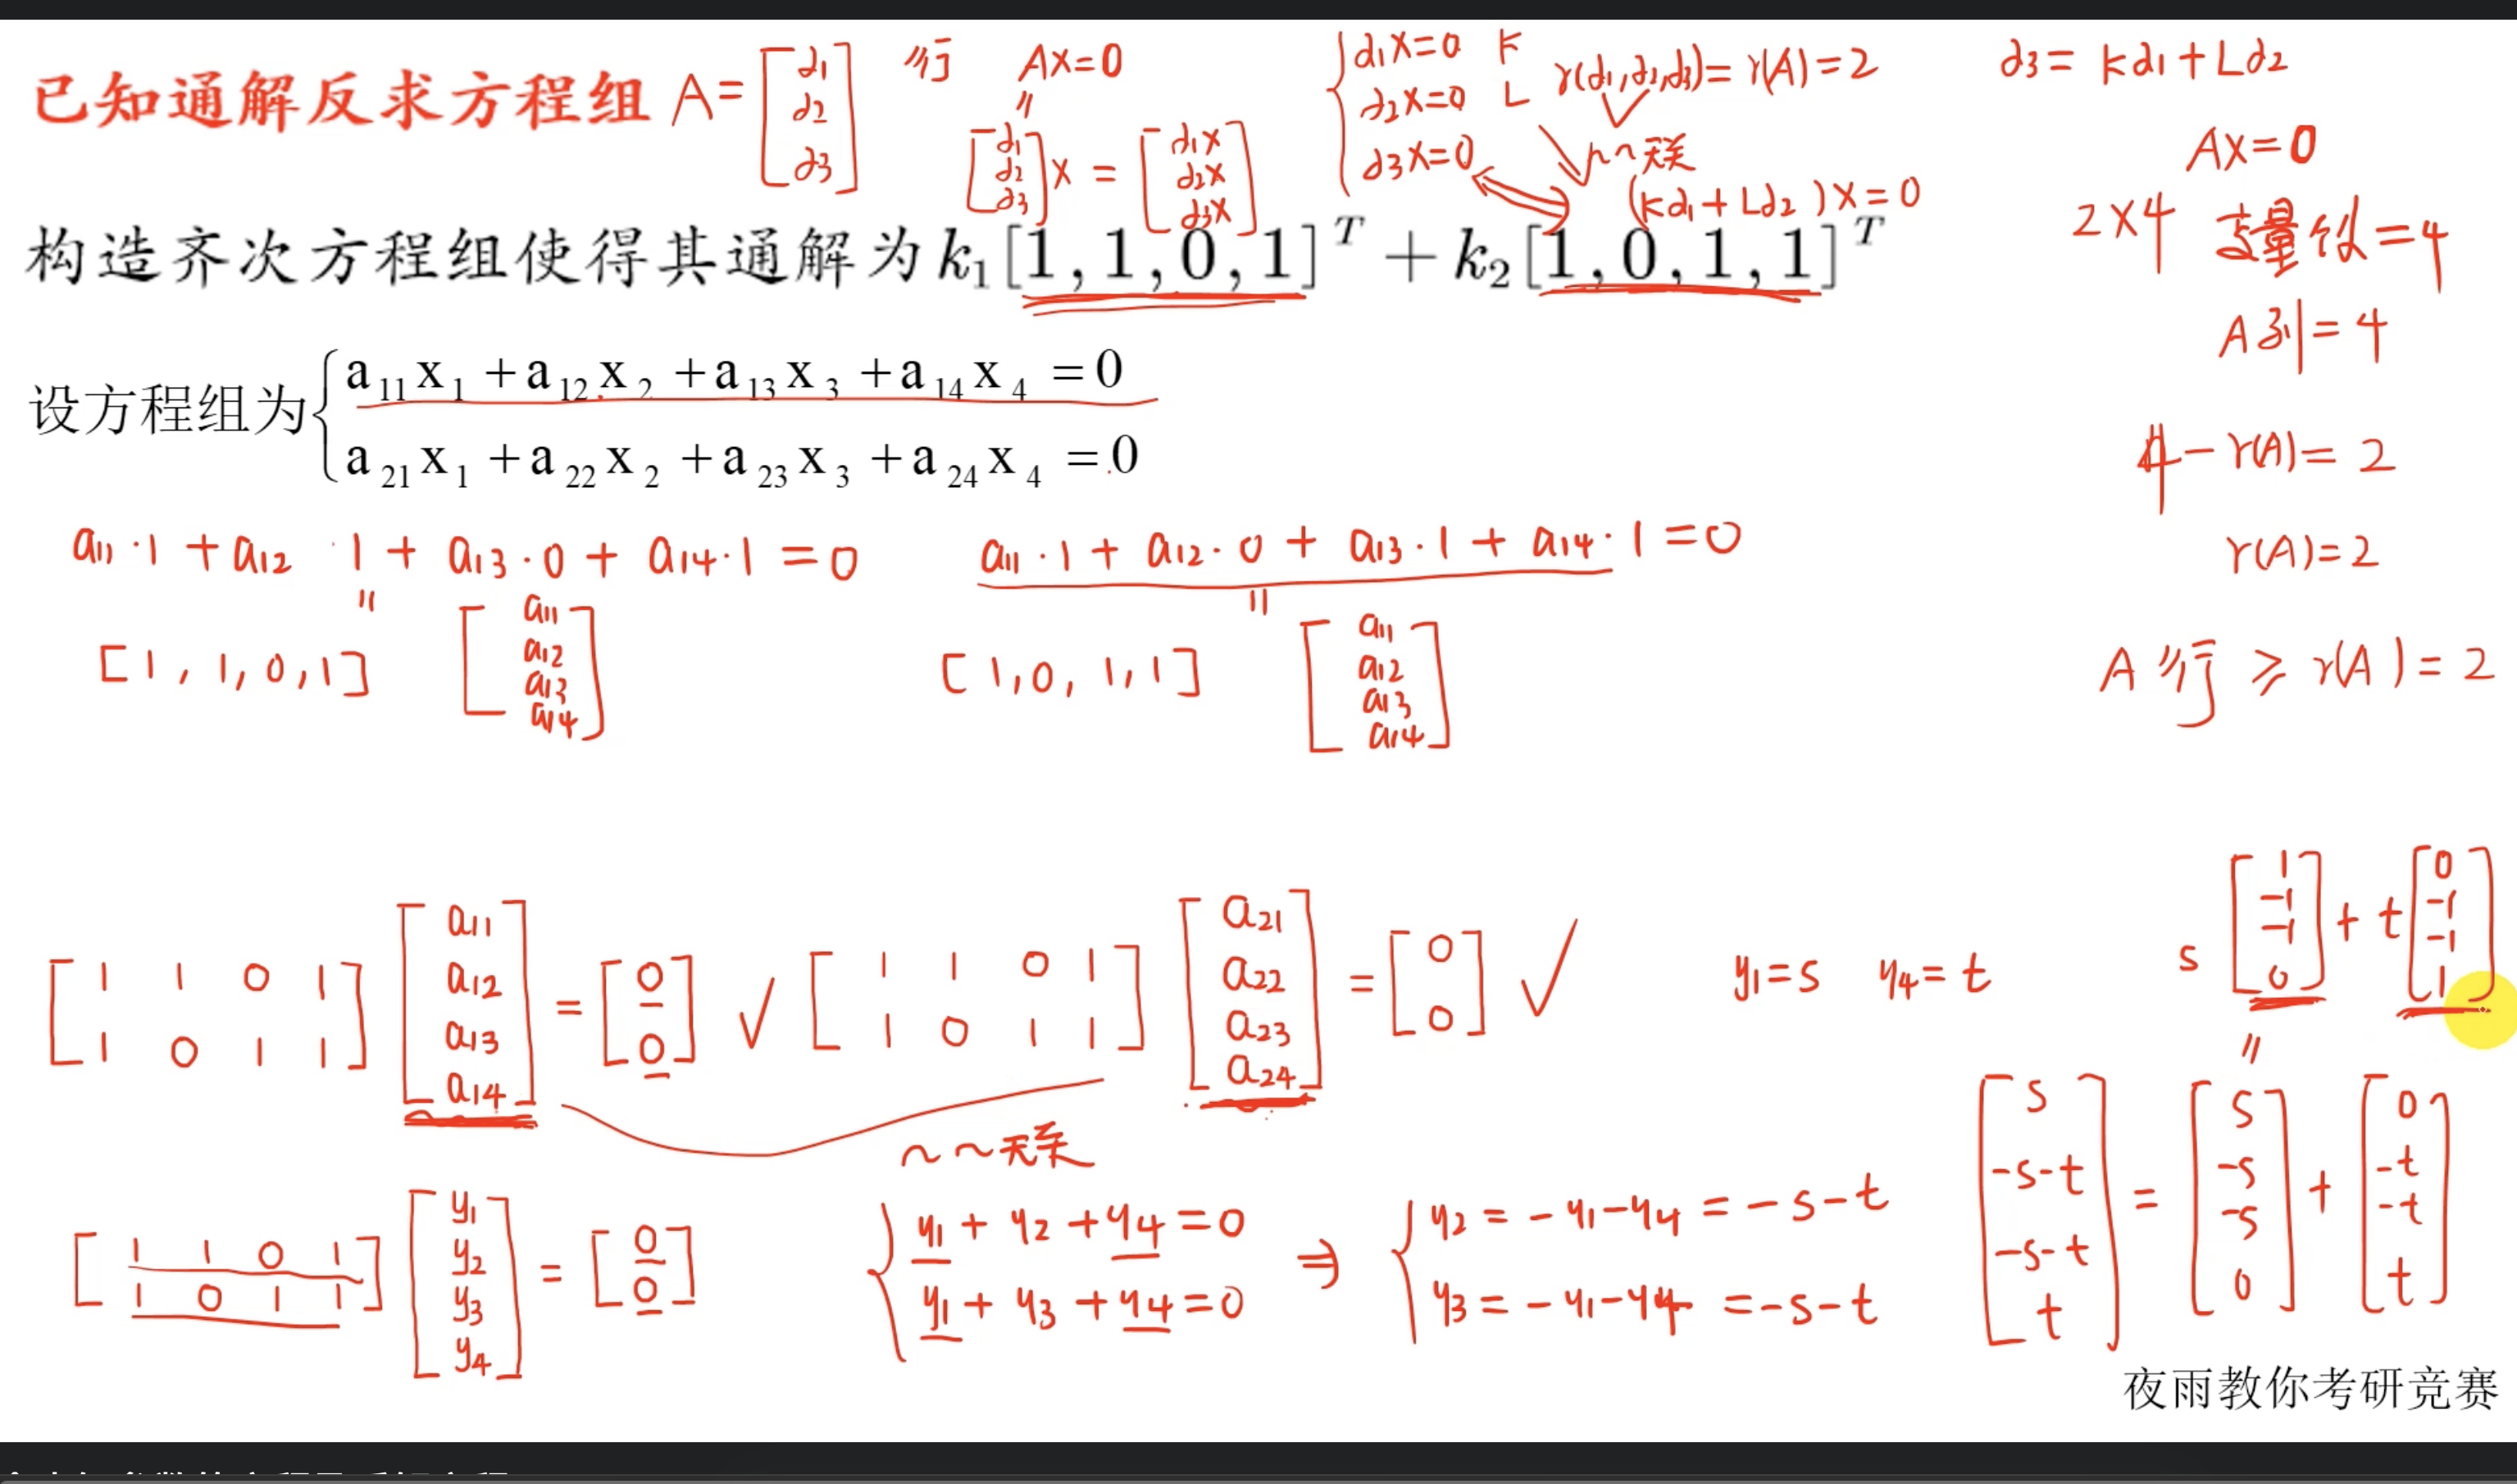 已知通解反求方程组 A = [α1 α2 α3] 行 AX=0
= [α1 α2 α3] X = [α1X α2X α3X]
{ α1X=0 K
α2X=0 L
α3X=0
r(α1,α2,α3) = r(A) = 2
~~无关
(Kα1+Lα2)X=0
α3 = Kα1+Lα2
AX=0
2×4 变量个数=4
A列=4
4-r(A)=2
r(A)=2
A行 ≥ r(A)=2
构造齐次方程组使得其通解为k1[1,1,0,1]^T+k2[1,0,1,1]^T
设方程组为{ a11x1+a12x2+a13x3+a14x4=0
a21x1+a22x2+a23x3+a24x4=0
a11·1+a12·1+a13·0+a14·1=0
=
[1,1,0,1] [a11 a12 a13 a14]
a11·1+a12·0+a13·1+a14·1=0
=
[1,0,1,1] [a11 a12 a13 a14]
[1 1 0 1
1 0 1 1] [a11 a12 a13 a14] = [0 0] ✓
[1 1 0 1
1 0 1 1] [a21 a22 a23 a24] = [0 0] ✓
~~无关
y1=s y4=t
s[1 -1 -1 0] + t[0 -1 -1 1]
=
[s -s-t -s-t t] = [s -s -s 0] + [0 -t -t t]
[1 1 0 1
1 0 1 1] [y1 y2 y3 y4] = [0 0]
{ y1+y2+y4=0
y1+y3+y4=0
⇒ { y2=-y1-y4=-s-t
y3=-y1-y4=-s-t
夜雨教你考研竞赛